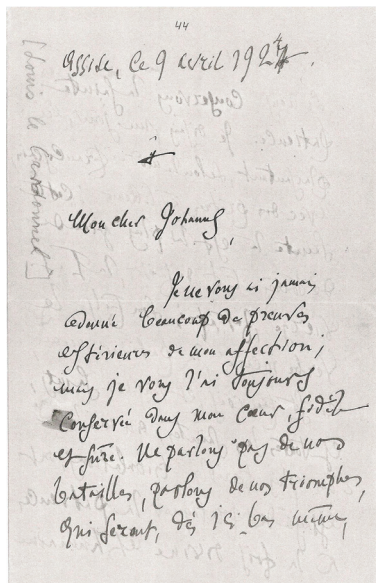 44
Assise, le 9 avril 1924.
[Louis le Cardonnel]
Mon cher Johannès,
Je ne vous ai jamais
donné beaucoup de preuves
extérieures de mon affection,
mais je vous l'ai toujours
conservée dans mon cœur, fidèle
et sûre. Ne parlons pas de nos
batailles, parlons de nos triomphes,
qui seront, dès ici-bas même,